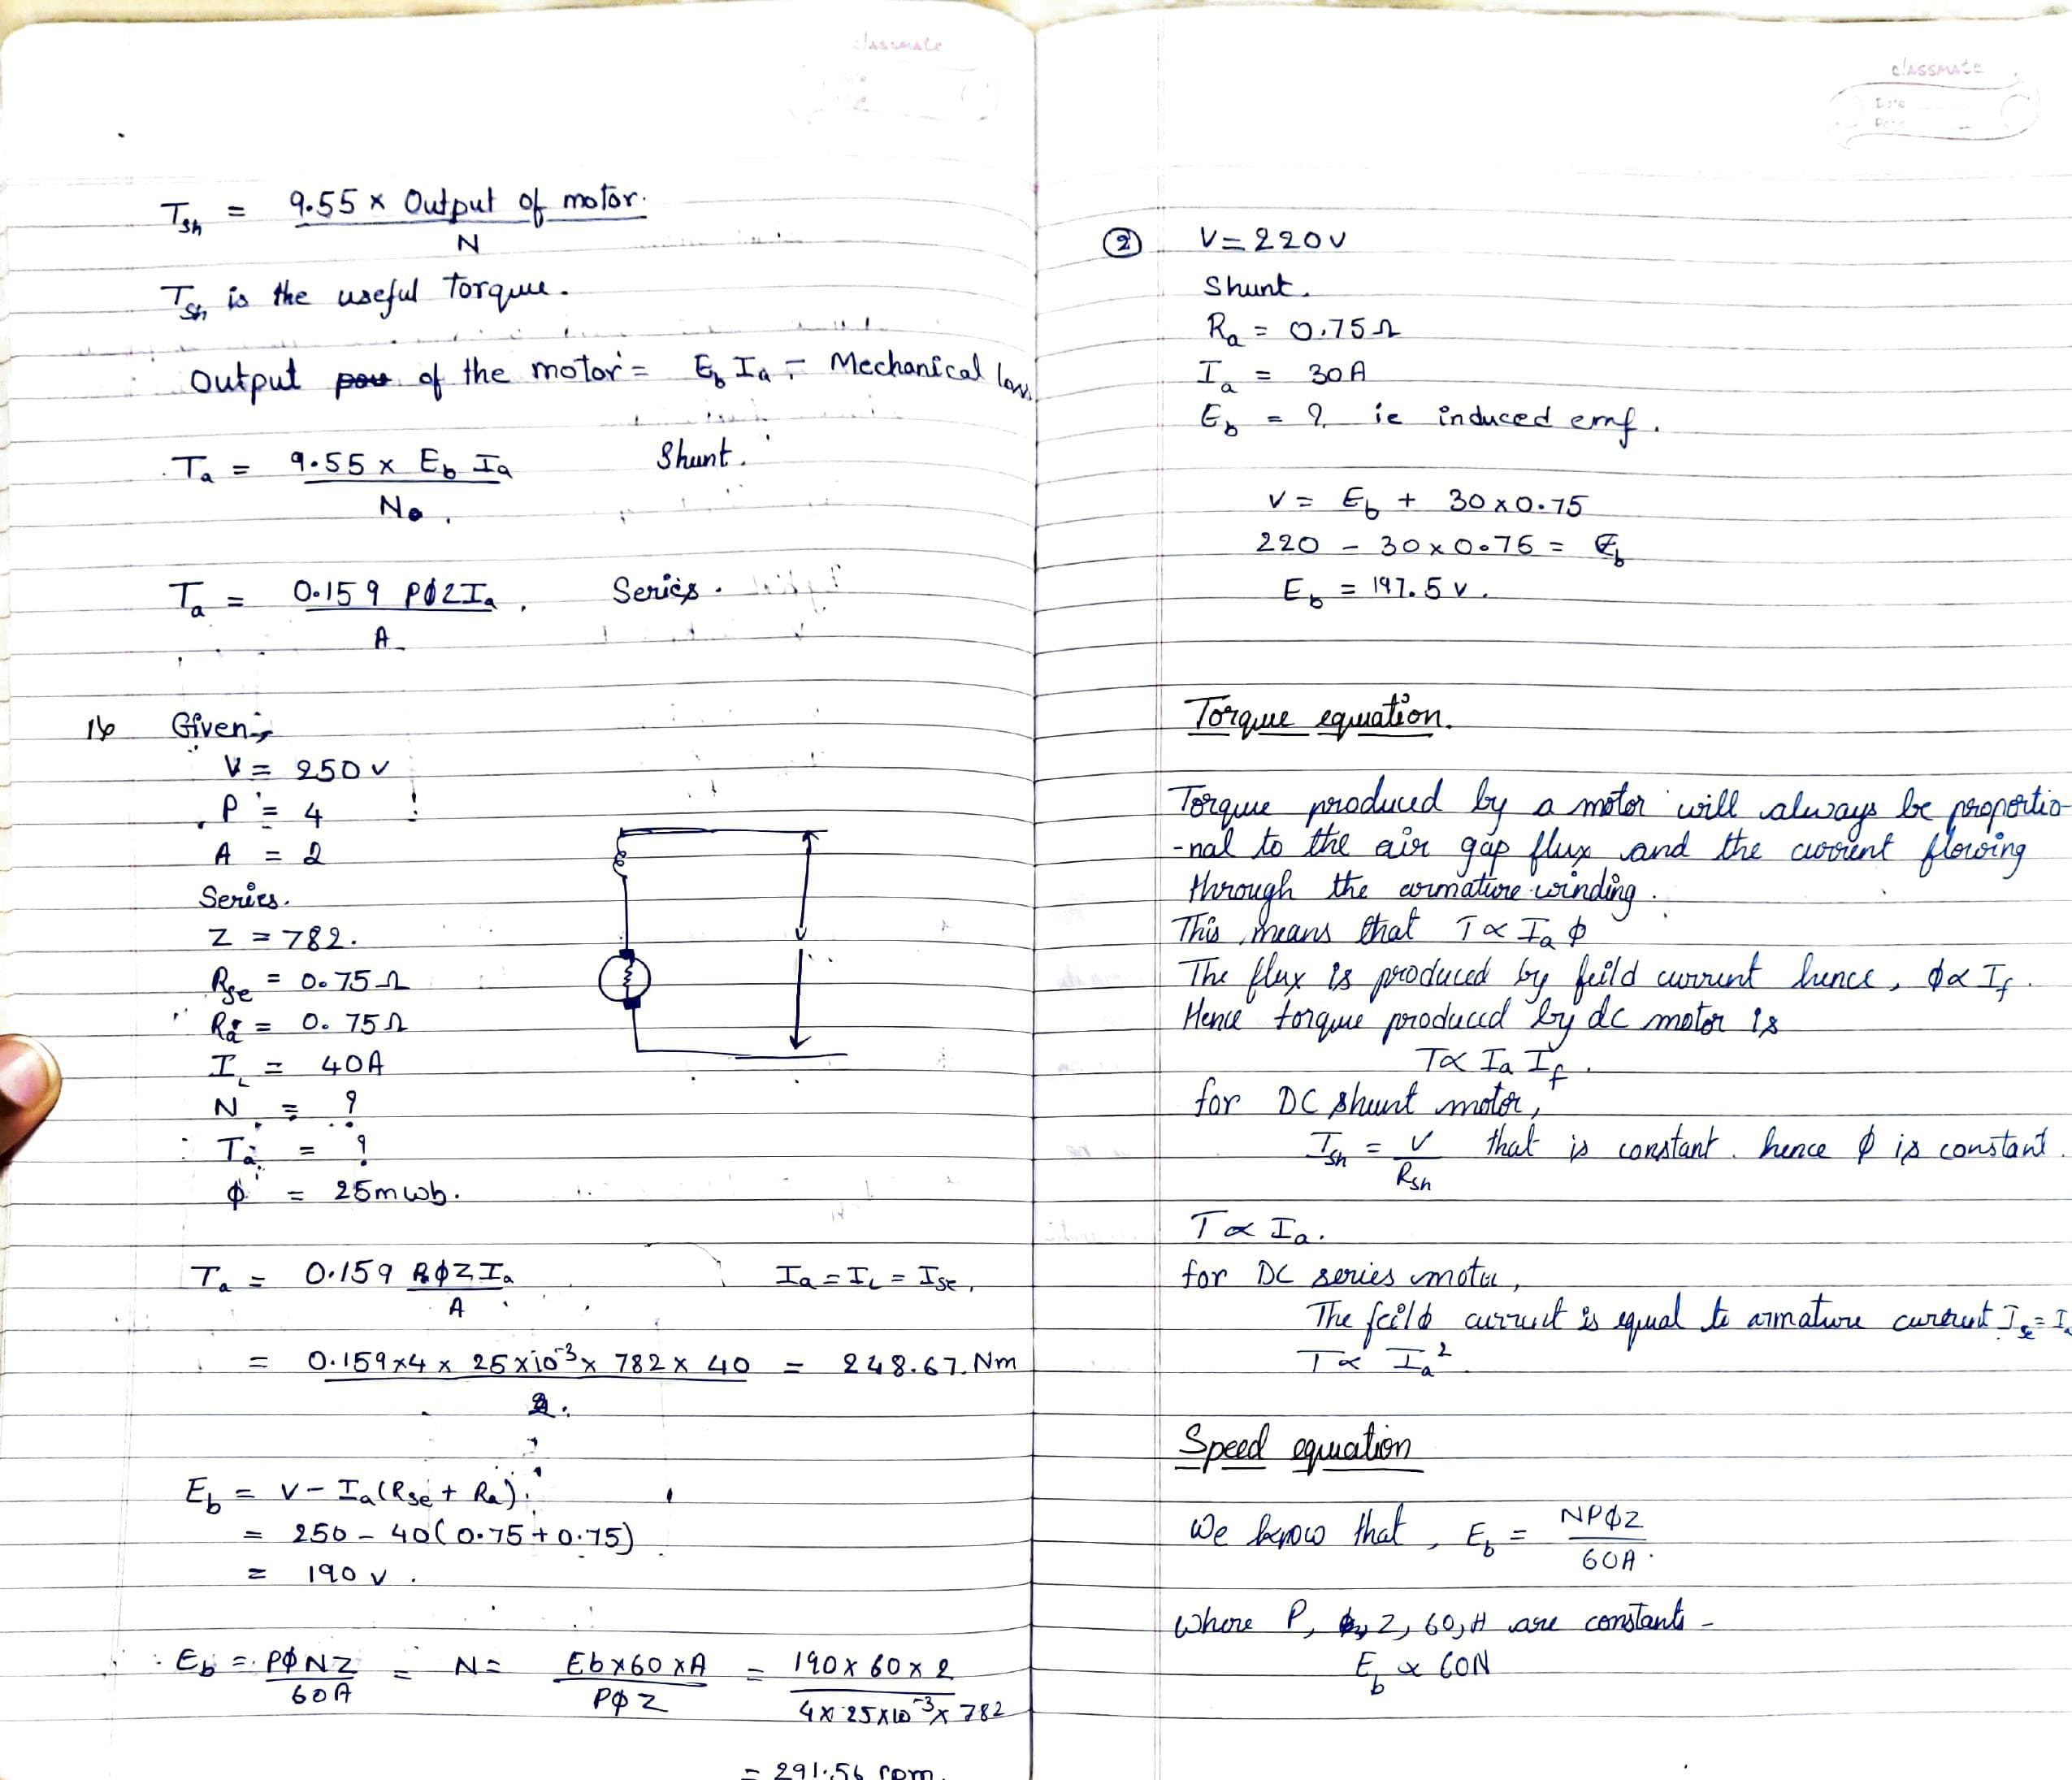 classmate
T_sh = 9.55 × Output of motor.
N
T_sh is the useful Torque.
Output of the motor = E_b I_a - Mechanical loss
T_a = 9.55 × E_b I_a Shunt.
N
T_a = 0.159 PϕZI_a Series.
A
16 Given:-
V = 250 V
P = 4
A = 2
Series.
Z = 782.
R_se = 0.75Ω
R_a = 0.75Ω
I_L = 40A
N = ?
T_a = ?
ϕ = 25mwb.
T_a = 0.159 PϕZI_a I_a = I_L = I_se,
A
= 0.159×4 × 25×10⁻³ × 782 × 40 = 248.67 Nm
2.
E_b = V - I_a(R_se + R_a)
= 250 - 40(0.75 + 0.75)
= 190 V.
E_b = PϕNZ = N = Eb×60×A = 190 × 60 × 2
60A PϕZ 4×25×10⁻³ × 782
= 291.56 rpm.
classmate
Date
Page
② V = 220V
Shunt.
R_a = 0.75Ω
I_a = 30A
E_b = ? ie induced emf.
V = E_b + 30×0.75
220 - 30×0.75 = E_b
E_b = 197.5 V.
Torque equation.
Torque produced by a motor will always be proportio-
-nal to the air gap flux and the current flowing
through the armature winding.
This means that T ∝ I_a ϕ
The flux is produced by feild current hence, ϕ ∝ I_f.
Hence torque produced by dc motor is
T ∝ I_a I_f.
for DC shunt motor,
I_sh = V that is constant. hence ϕ is constant.
R_sh
T ∝ I_a.
for DC series motor,
The feild current is equal to armature current I_se = I_a
T ∝ I_a²
Speed equation
We know that, E_b = NPϕZ
60A.
where P, Z, 60, A are constants -
E_b ∝ ϕN